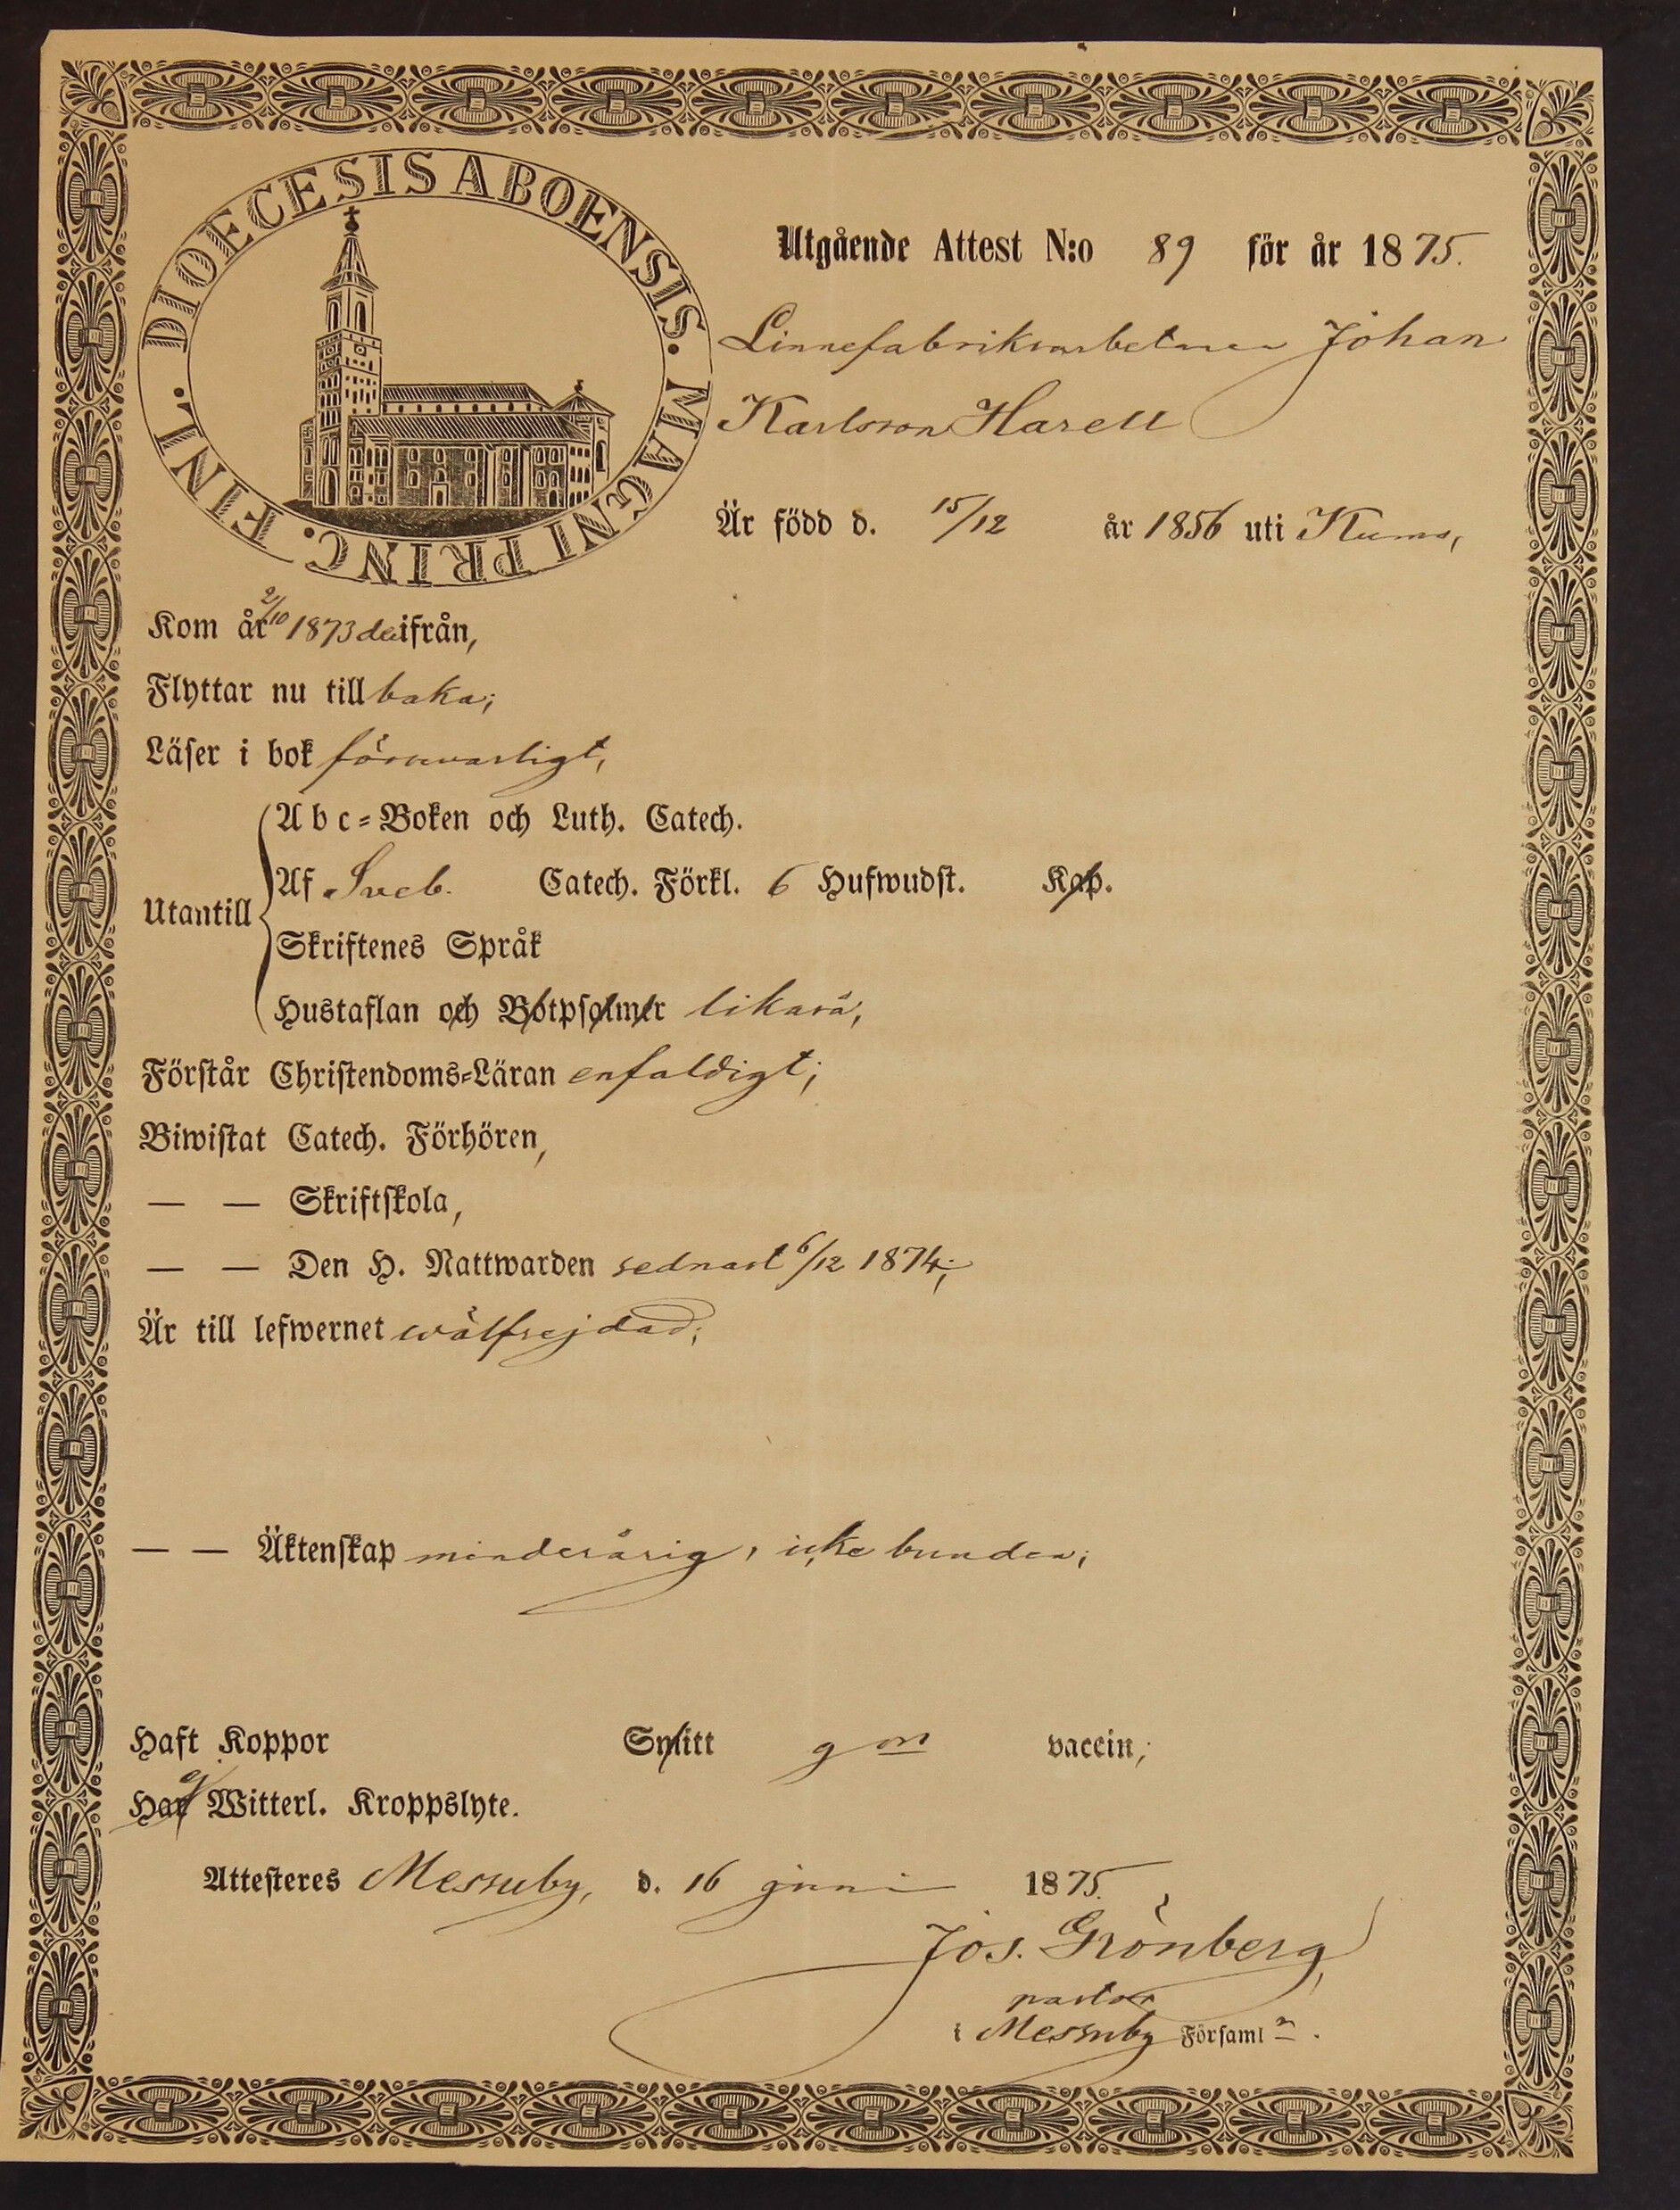 DIOECESIS ABOENSIS. MAGNI PRINC. FINL.
Utgående Attest N:o 89 för år 1875.
Linnefabriksarbetaren Johan
Karlsson Harell
Är född d. 15/12 år 1856 uti Kumo,
Kom år 2/10 1873 därifrån,
Flyttar nu till baka;
Läser i bok försvarligt,
Abc-Boken och Luth. Catech.
Utantill
Af Sveb. Catech. Förkl. 6 Hufwudst. Kap.
Skriftenes Språk
Hustaflan och Botpsalmer likaså,
Förstår Christendoms-Läran enfaldigt;
Biwistat Catech. Förhören,
— — Skriftskola,
— — Den H. Nattwarden sednast 6/12 1874;
Är till lefwernet wälfrejdad;
— — Äktenskap minderårig, icke bunden;
Haft Koppor Smitt gm vaccin;
Har ej Witterl. Kroppslyte.
Attesteres Messuby, d. 16 juni 1875.
Jos. Grönberg,
pastor
i Messuby Församl n.